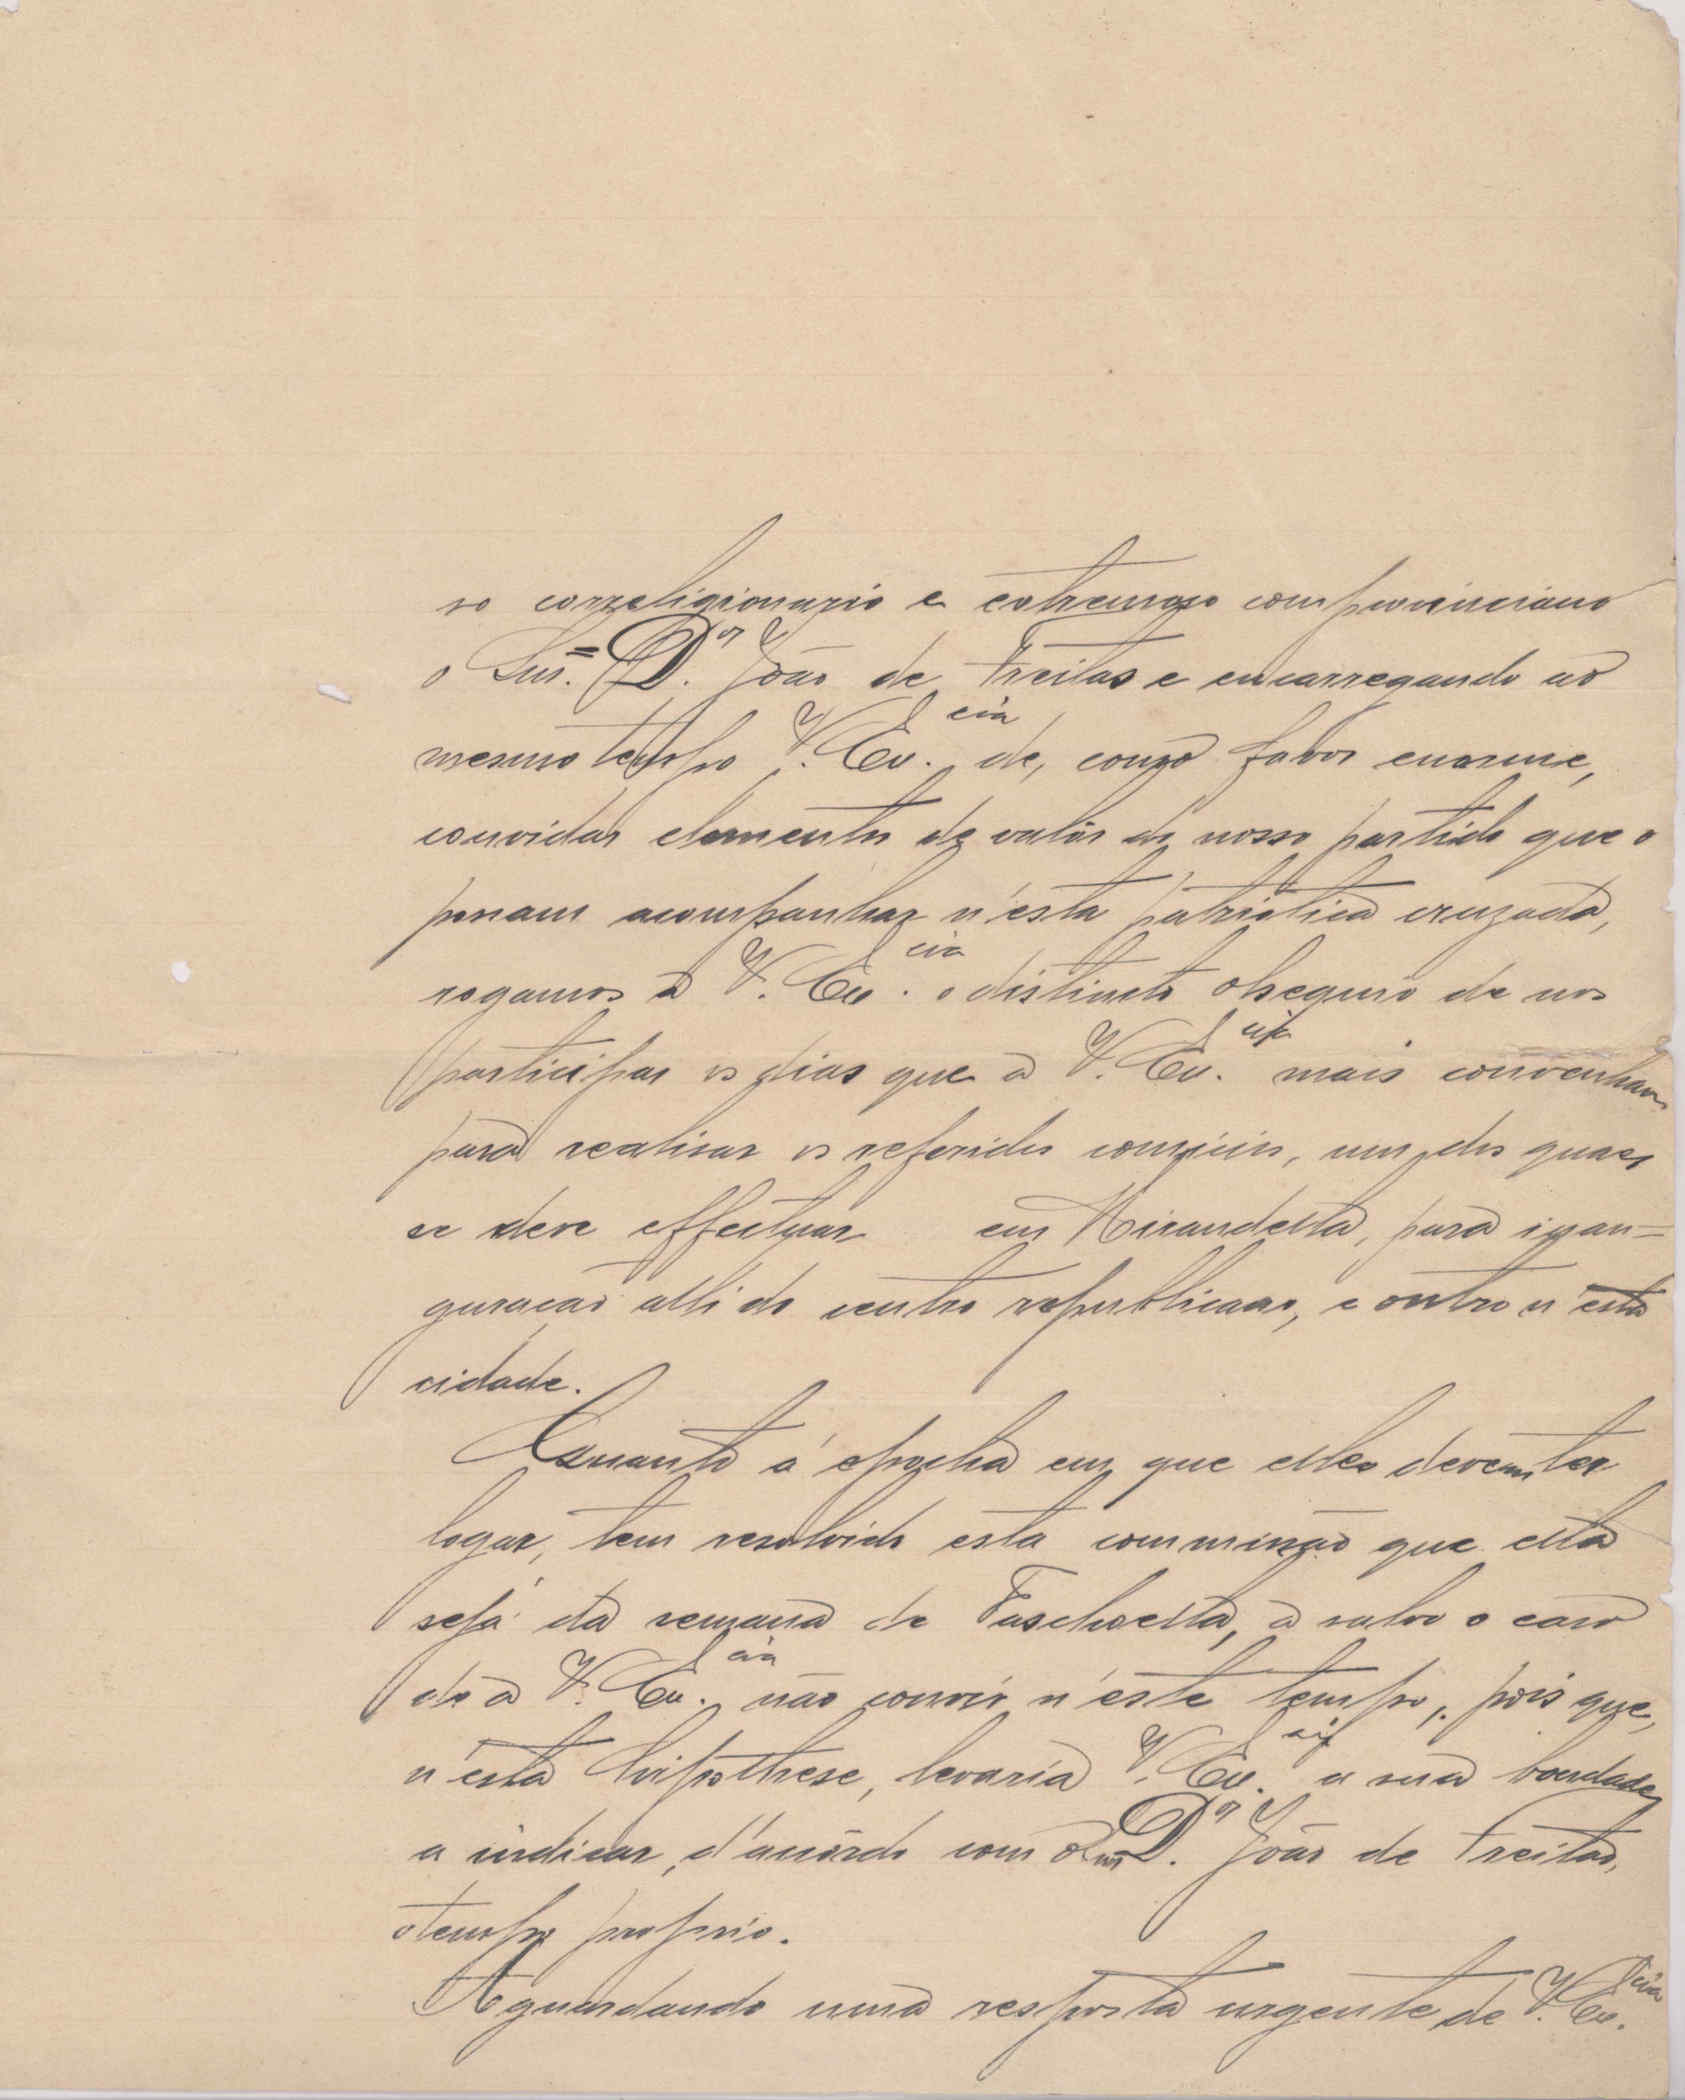 so correligionario e extremoso comprovinciano
o Snr. Dr. João de Freitas e encarregando ao
mesmo tempo V. Ex.cia de, como favor enorme,
convidar elementos de valôr do nosso partido que o
possam acompanhar n'esta patriotica cruzada,
rogamos a V. Ex.cia o distincto obsequio de nos
participar os dias que a V. Ex.cia mais convenham
para realisar os referidos comicios, um dos quaes
se deve effectuar em Mirandella, para inau=
guração alli do centro republicano, e outro n'esta
cidade.
Quanto á epocha em que elles devem ter
logar, tem resolvido esta commissão que ella
seja da semana de Paschoella, a salvo o caso
de a V. Ex.cia não convir n'este tempo, pois que,
n'esta hipothese, levaria V. Ex.cia a sua bondade
a indicar, d'acôrdo com o Snr Dr. João de Freitas,
o tempo proprio.
Aguardando uma resposta urgente de V. Ex.cia